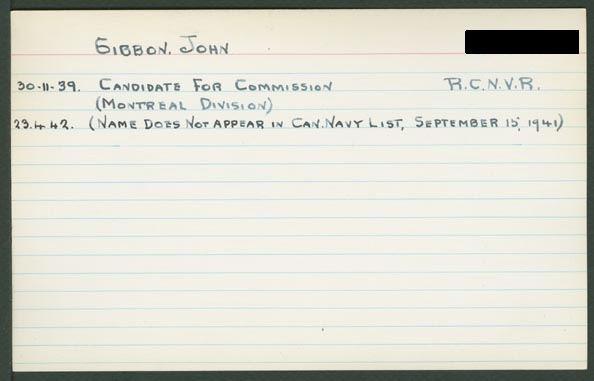 GIBBON, JOHN
30-11-39. CANDIDATE FOR COMMISSION R.C.N.V.R.
(MONTREAL DIVISION)
23.4.42. (NAME DOES NOT APPEAR IN CAN. NAVY LIST, SEPTEMBER 15, 1941)